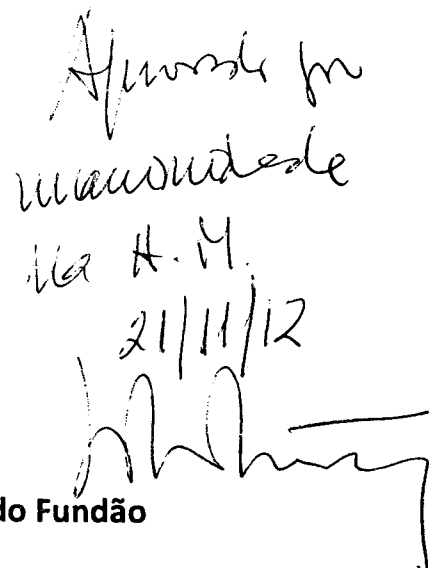 Aprovado por
unanimidade
na A.M.
21/11/12
do Fundão